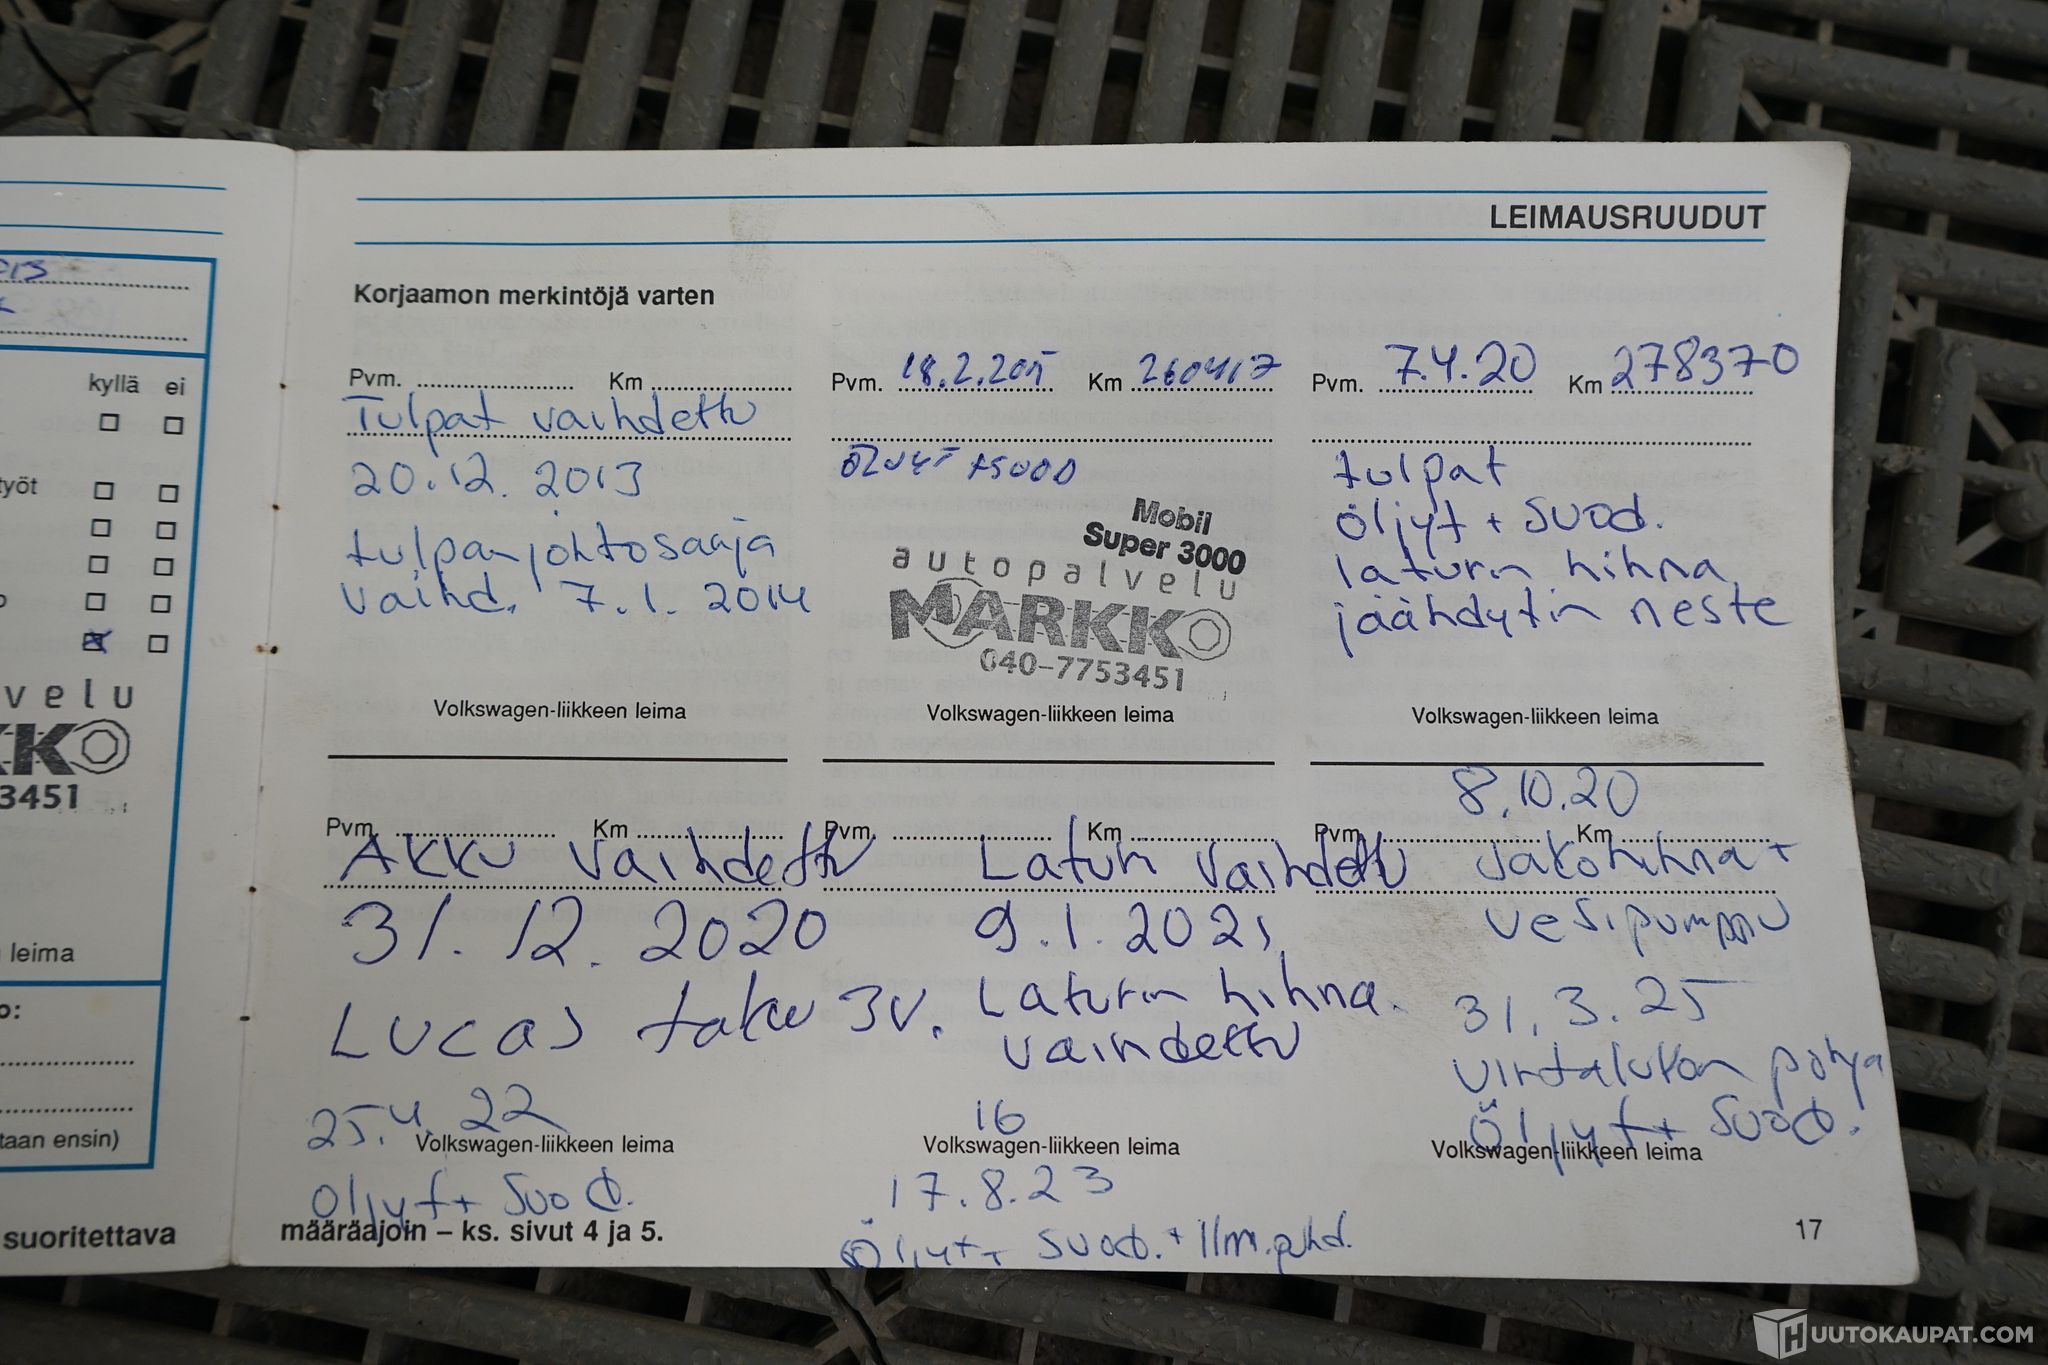 LEIMAUSRUUDUT
Korjaamon merkintöjä varten
Pvm. Km
Tulpat vaihdettu
20.12.2013
tulpanjohtosarja
vaihd. 7.1.2014
Volkswagen-liikkeen leima
Pvm. 18.2.2015 Km 260417
ÖLJYT + SUOD
Mobil
Super 3000
autopalvelu
MARKKO
040-7753451
Volkswagen-liikkeen leima
Pvm. 7.4.20 Km 278370
tulpat
öljyt + suod.
laturin hihna
jäähdytin neste
Volkswagen-liikkeen leima
Pvm. Km
Akku vaihdettu
31.12.2020
Lucas takuu 3v.
25.4.22
Volkswagen-liikkeen leima
Öljyt + suod.
Pvm. Km
Laturi vaihdettu
9.1.2021
Laturin hihna
vaihdettu
16
Volkswagen-liikkeen leima
17.8.23
Öljyt + suod. + Ilm.puhd.
8.10.20
Pvm. Km
Jakohihna +
vesipumppu
31.3.25
virtalukon pohja
Öljyt + suod.
Volkswagen-liikkeen leima
määräajoin – ks. sivut 4 ja 5.
17
kyllä ei
työt
velu
KKO
3451
leima
taan ensin)
suoritettava
HUUTOKAUPAT.COM